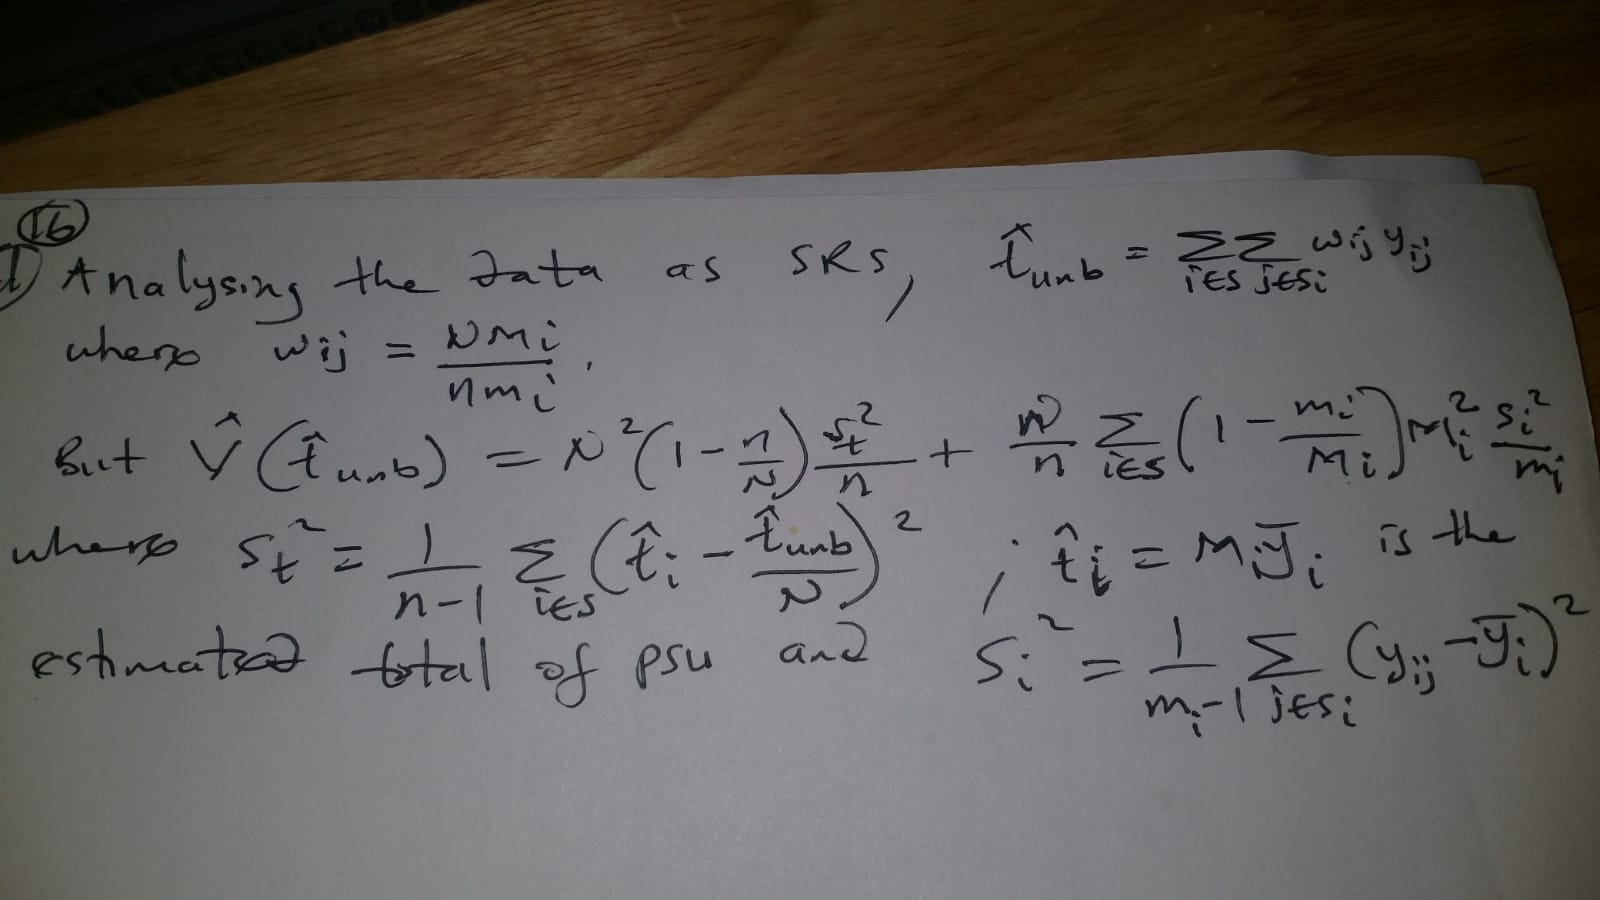 16
d) Analysing the data as SRS, t̂_unb = Σ_{i∈S} Σ_{j∈S_i} w_ij y_ij
where w_ij = NM_i / nm_i.
But V̂(t̂_unb) = N²(1 - n/N) s_t²/n + N/n Σ_{i∈S} (1 - m_i/M_i) M_i² s_i²/m_i
where s_t² = 1/(n-1) Σ_{i∈S} (t̂_i - t̂_unb/N)² ; t̂_i = M_i ȳ_i is the
estimated total of psu and s_i² = 1/(m_i-1) Σ_{j∈S_i} (y_ij - ȳ_i)²